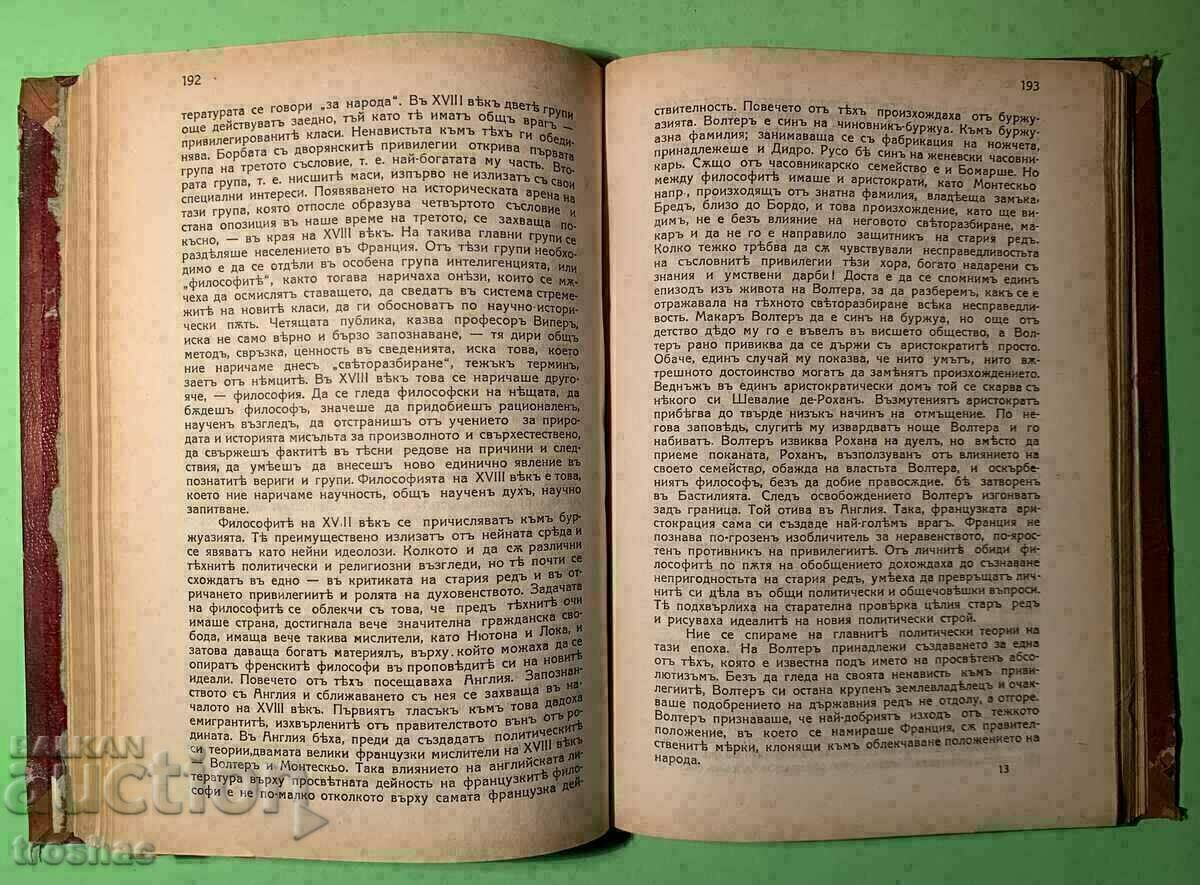 192
тературата се говори „за народа“. Въ XVIII вѣкъ дветѣ групи
още действуватъ заедно, тъй като тѣ иматъ общъ врагъ —
привилегированитѣ класи. Ненавистьта къмъ тѣхъ ги обеди-
нява. Борбата съ дворянскитѣ привилегии открива първата
група на третото съсловие, т. е. най-богатата му часть. Вто-
рата група, т. е. нисшитѣ маси, изпърво не излизатъ съ свои
специални интереси. Появяването на историческата арена на
тази група, която отпосле образува четвъртото съсловие и
стана опозиция въ наше време на третото, се захваща по-
късно, — въ края на XVIII вѣкъ. На такива главни групи се
раздѣляше населението въ Франция. Отъ тѣзи групи необхо-
димо е да се отдѣли въ особена група интелигенцията, или
„философитѣ“, както тогава наричаха онѣзи, които се мѫ-
чеха да осмислятъ ставащето, да сведатъ въ система стреме-
житѣ на новитѣ класи, да ги обосноватъ по научно-истори-
чески пѫть. Четящата публика, казва професоръ Виперъ,
иска не само вѣрно и бързо запознаване, — тя дири общъ
методъ, свръзка, ценность въ сведенията, иска това, което
ние наричаме днесъ „свѣторазбиране“, тежъкъ терминъ,
заетъ отъ нѣмцитѣ. Въ XVIII вѣкъ това се наричаше друго-
яче, — философия. Да се гледа философски на нѣщата, да
бѫдешъ философъ, значеше да придобиешъ рационаленъ,
наученъ възгледъ, да отстранишъ отъ учението за приро-
дата и историята мисъльта за произволното и свърхестествено,
да свържешъ фактитѣ въ тѣсни редове на причини и след-
ствия, да умѣешъ да внесешъ ново единично явление въ
познатитѣ вериги и групи. Философията на XVIII вѣкъ е това,
което ние наричаме научность, общъ наученъ духъ, научно
запитване.
Философитѣ на XVIII вѣкъ се причисляватъ къмъ бур-
жуазията. Тѣ преимуществено излизатъ отъ нейната срѣда и
се явяватъ като нейни идеолози. Колкото и да сѫ различни
тѣхнитѣ политически и религиозни възгледи, но тѣ почти се
схождатъ въ едно — въ критиката на стария редъ и въ от-
ричането привилегиитѣ и ролята на духовенството. Задачата
на философитѣ се облекчи съ това, че предъ тѣхнитѣ очи
имаше страна, достигнала вече значителна гражданска сво-
бода, имаща вече такива мислители, като Нютона и Лока, и
затова даваща богатъ материялъ, върху който можаха да се
опиратъ френскитѣ философи въ проповѣдитѣ си на новитѣ
идеали. Повечето отъ тѣхъ посещаваха Англия. Запознан-
ството съ Англия и сближаването съ нея се захваща въ на-
чалото на XVIII вѣкъ. Първиятъ тласъкъ къмъ това дадоха
емигрантитѣ, изхвърленитѣ отъ правителството вънъ отъ ро-
дината. Въ Англия бѣха, преди да създадатъ политическитѣ
си теории, двамата велики французки мислители на XVIII вѣкъ
— Волтеръ и Монтескьо. Така влиянието на английската ли-
тература върху просвѣтната дейность на французкитѣ фило-
софи е не по-малко отколкото върху самата французка дей-
193
ствителность. Повечето отъ тѣхъ произхождаха отъ буржу-
азията. Волтеръ е синъ на чиновникъ-буржуа. Къмъ буржу-
азна фамилия; занимаваща се съ фабрикация на ножчета,
принадлежеше и Дидро. Русо бѣ синъ на женевски часовни-
карь. Сѫщо отъ часовникарско семейство е и Бомарше. Но
между философитѣ имаше и аристократи, като Монтескьо
напр., произходящъ отъ знатна фамилия, владѣеща замъка
Бредъ, близо до Бордо, и това произхождение, като ще ви-
димъ, не е безъ влияние на неговото свѣторазбиране, ма-
каръ и да не го е направило защитникъ на стария редъ.
Колко тежко трѣбва да сѫ чувствували несправедливостьта
на съсловнитѣ привилегии тѣзи хора, богато надарени съ
знания и умствени дарби! Доста е да се спомнимъ единъ
епизодъ изъ живота на Волтера, за да разберемъ, какъ се е
отражавала на тѣхното свѣторазбиране всѣка несправедли-
вость. Макаръ Волтеръ да е синъ на буржуа, но още отъ
детство дѣдо му го е въвелъ въ висшето общество, а Вол-
теръ рано привиква да се държи съ аристократитѣ просто.
Обаче, единъ случай му показва, че нито умътъ, нито вѫ-
трешното достоинство могатъ да замѣнятъ произхождението.
Веднъжъ въ единъ аристократически домъ той се скарва съ
нѣкого си Шевалие де-Роханъ. Възмутениятъ аристократъ
прибѣгва до твърде низъкъ начинъ на отмъщение. По не-
гова заповѣдь, слугитѣ му извардватъ ноще Волтера и го
набиватъ. Волтеръ извиква Рохана на дуелъ, но вмѣсто да
приеме поканата, Роханъ, възползуванъ отъ влиянието на
своето семейство, обажда на властьта Волтера, и оскърбе-
ниятъ философъ, безъ да добие правосѫдие, бѣ затворенъ
въ Бастилията. Следъ освобождението Волтеръ изгонватъ
задъ граница. Той отива въ Англия. Така, французката ари-
стокрация сама си създаде най-голѣмъ врагъ. Франция не
познава по-грозенъ изобличитель за неравенството, по-ярос-
тенъ противникъ на привилегиитѣ. Отъ личнитѣ обиди фи-
лософитѣ по пѫтя на обобщението дохождаха до съзнаване
непригодностьта на стария редъ, умѣеха да превръщатъ лич-
нитѣ си дѣла въ общи политически и общечовѣшки въпроси.
Тѣ подхвърлиха на старателна провѣрка цѣлия старъ редъ
и рисуваха идеалитѣ на новия политически строй.
Ние се спираме на главнитѣ политически теории на
тази епоха. На Волтеръ принадлежи създаването за една
отъ тѣхъ, която е известна подъ името на просвѣтенъ абсо-
лютизъмъ. Безъ да гледа на своята ненависть къмъ приви-
легиитѣ, Волтеръ си остана крупенъ землевладѣлецъ и очак-
ваше подобрението на държавния редъ не отдолу, а отгоре.
Волтеръ признаваше, че най-добриятъ изходъ отъ тежкото
положение, въ което се намираше Франция, сѫ правител-
ственитѣ мѣрки, клонящи къмъ облекчаване положението на
народа.
13
BALKAN
auction
troshac